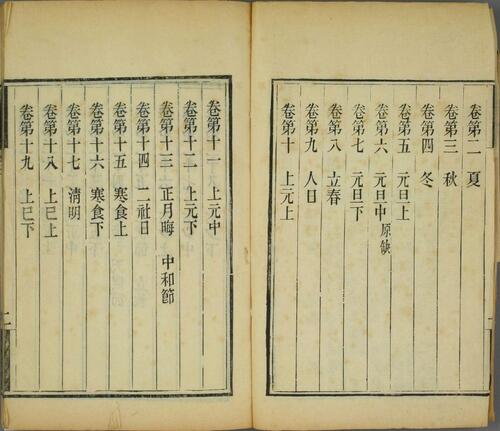 卷第二 夏
卷第三 秋
卷第四 冬
卷第五 元旦上
卷第六 元旦中 原缺
卷第七 元旦下
卷第八 立春
卷第九 人日
卷第十 上元上
卷第十一 上元中
卷第十二 上元下
卷第十三 正月晦 中和節
卷第十四 二社日
卷第十五 寒食上
卷第十六 寒食下
卷第十七 淸明
卷第十八 上巳上
卷第十九 上巳下
二